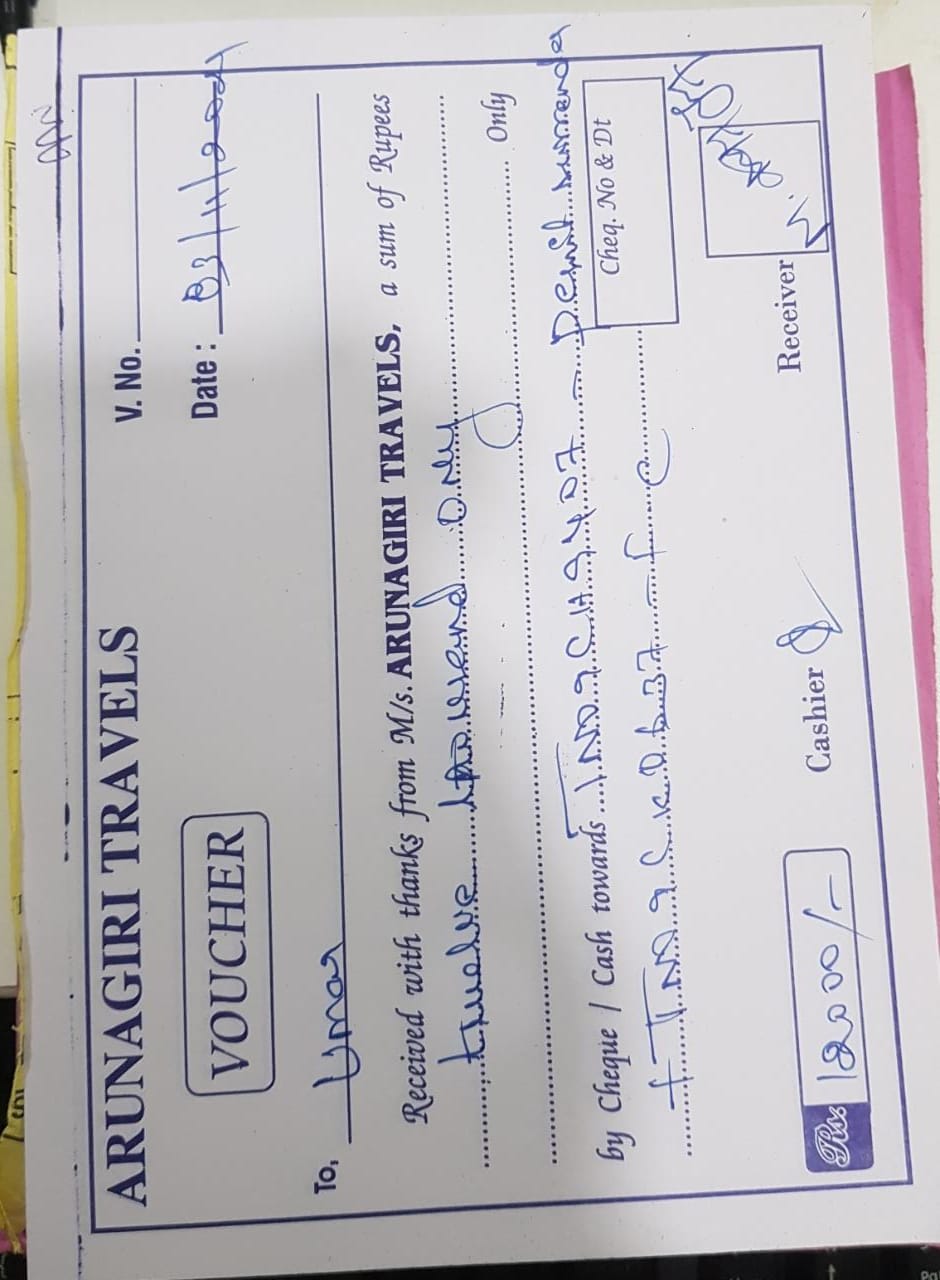 ARUNAGIRI TRAVELS
V. No.
VOUCHER
Date :
To, Umar
Received with thanks from M/s. ARUNAGIRI TRAVELS, a sum of Rupees
twelve thousand only
Only
by Cheque / Cash towards TN09CH9407 - Permit surrender
+ TN09CK0637 - FC
Cheq. No & Dt
Rs. 12000/-
Cashier
Receiver